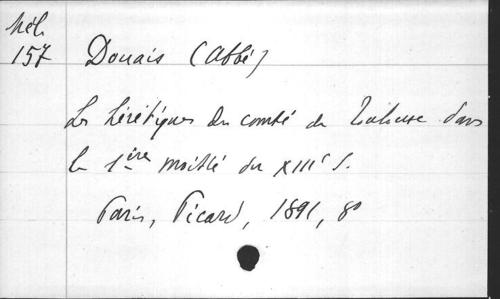 Mél.
157 Douais (Abbé)
Les hérétiques du comté de Toulouse dans
la 1ère moitié du XIIIe s.
Paris, Picard, 1891, 8º